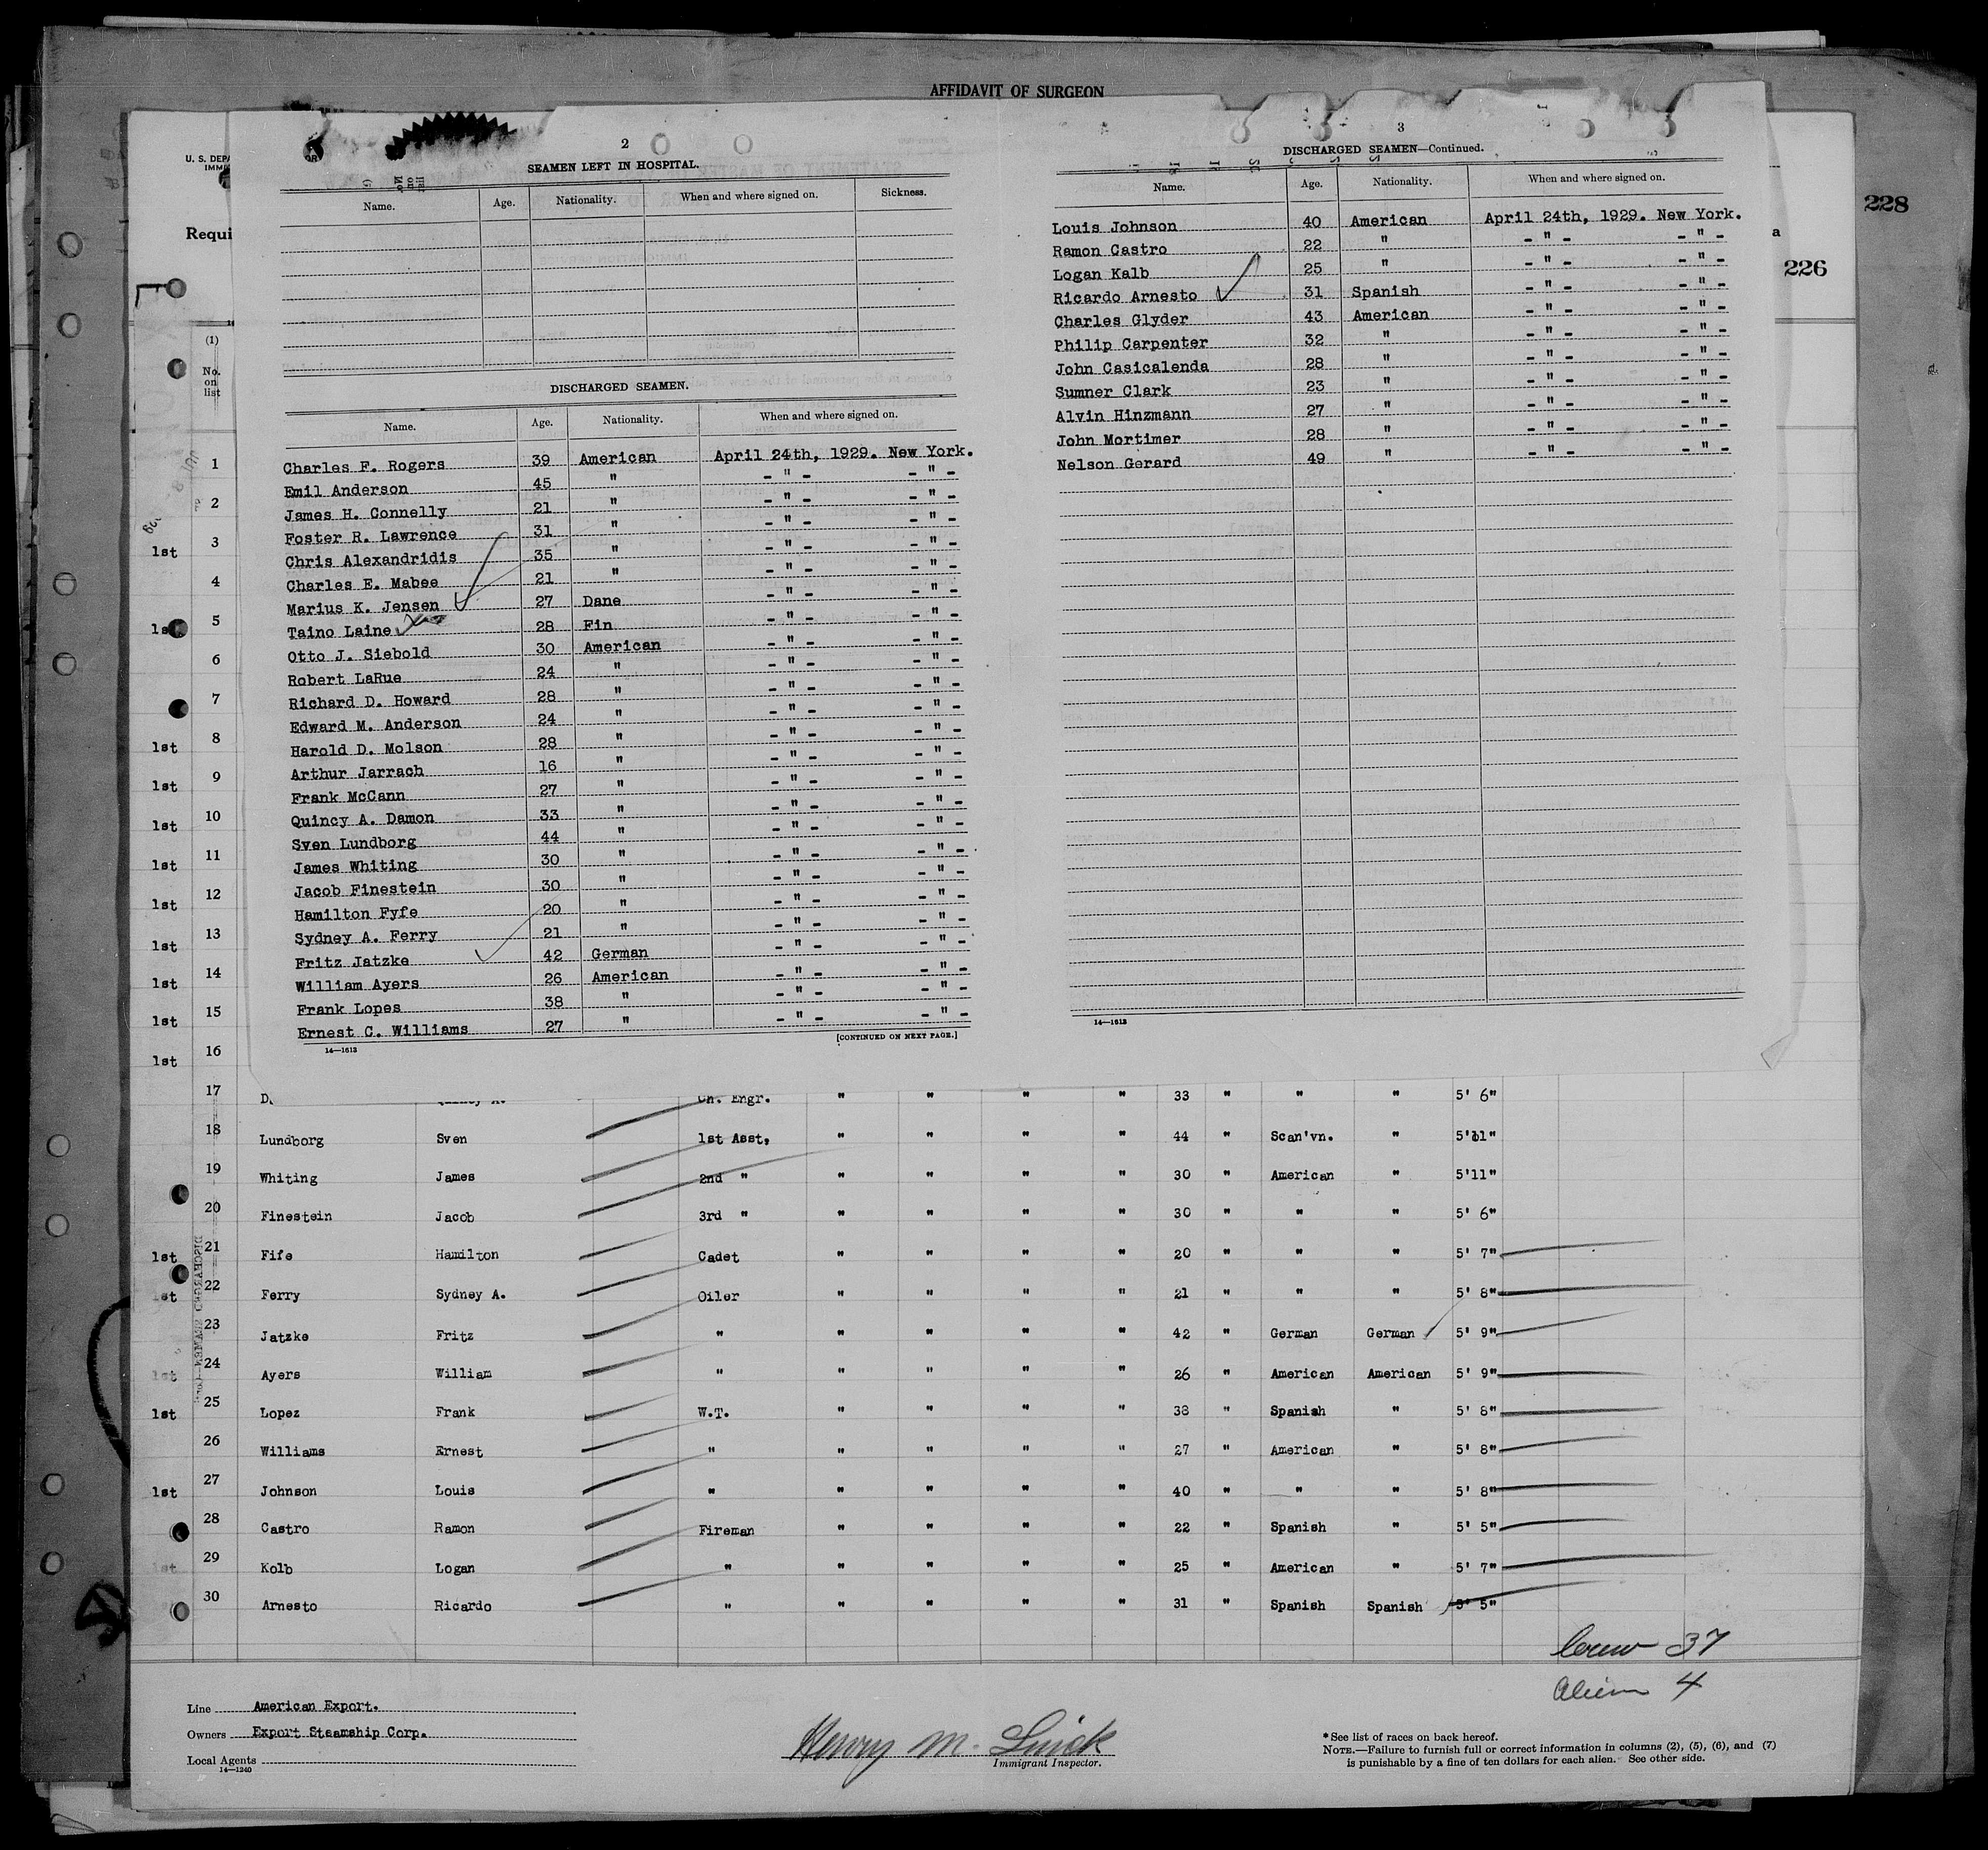 AFFIDAVIT OF SURGEON
228
226
U. S. DEPA
IMMI
Requi
(1)
No.
on
list
2
SEAMEN LEFT IN HOSPITAL.
Name. Age. Nationality. When and where signed on. Sickness.
DISCHARGED SEAMEN.
Name. Age. Nationality. When and where signed on.
Charles F. Rogers 39 American April 24th, 1929. New York.
Emil Anderson 45 " - " - - " -
James H. Connelly 21 " - " - - " -
Foster R. Lawrence 31 " - " - - " -
Chris Alexandridis 35 " - " - - " -
Charles E. Mabee 21 " - " - - " -
Marius K. Jensen 27 Dane - " - - " -
Taino Laine 28 Fin - " - - " -
Otto J. Siebold 30 American - " - - " -
Robert LaRue 24 " - " - - " -
Richard D. Howard 28 " - " - - " -
Edward M. Anderson 24 " - " - - " -
Harold D. Molson 28 " - " - - " -
Arthur Jarrach 16 " - " - - " -
Frank McCann 27 " - " - - " -
Quincy A. Damon 33 " - " - - " -
Sven Lundborg 44 " - " - - " -
James Whiting 30 " - " - - " -
Jacob Finestein 30 " - " - - " -
Hamilton Fyfe 20 " - " - - " -
Sydney A. Ferry 21 " - " - - " -
Fritz Jatzke 42 German - " - - " -
William Ayers 26 American - " - - " -
Frank Lopes 38 " - " - - " -
Ernest C. Williams 27 " - " - - " -
14—1613
[CONTINUED ON NEXT PAGE.]
3
DISCHARGED SEAMEN—Continued.
Name. Age. Nationality. When and where signed on.
Louis Johnson 40 American April 24th, 1929. New York.
Ramon Castro 22 " - " - - " -
Logan Kalb 25 " - " - - " -
Ricardo Arnesto 31 Spanish - " - - " -
Charles Glyder 43 American - " - - " -
Philip Carpenter 32 " - " - - " -
John Casicalenda 28 " - " - - " -
Sumner Clark 23 " - " - - " -
Alvin Hinzmann 27 " - " - - " -
John Mortimer 28 " - " - - " -
Nelson Gerard 49 " - " - - " -
14—1613
1
2
3
1st
4
5
1s
6
7
8
1st
9
1st
10
1st
11
1st
12
1st
13
1st
14
1st
15
1st
16
1st
17 Ch. Engr. " " " " 33 " " " 5' 6"
18 Lundborg Sven 1st Asst, " " " " 44 " Scan'vn. " 5'11"
19 Whiting James 2nd " " " " " 30 " American " 5'11"
20 Finestein Jacob 3rd " " " " " 30 " " " 5' 6"
1st 21 Fife Hamilton Cadet " " " " 20 " " " 5' 7"
1st 22 Ferry Sydney A. Oiler " " " " 21 " " " 5' 8"
23 Jatzke Fritz " " " " " 42 " German German 5' 9"
1st 24 Ayers William " " " " " 26 " American American 5' 9"
1st 25 Lopez Frank W.T. " " " " 38 " Spanish " 5' 8"
26 Williams Ernest " " " " " 27 " American " 5' 8"
1st 27 Johnson Louis " " " " " 40 " " " 5' 8"
28 Castro Ramon Fireman " " " " 22 " Spanish " 5' 5"
1st 29 Kolb Logan " " " " " 25 " American " 5' 7"
30 Arnesto Ricardo " " " " " 31 " Spanish Spanish 5' 5"
Crew 37
Alien 4
Line American Export.
Owners Export Steamship Corp.
Local Agents
14—1240
Henry M.
Immigrant Inspector.
* See list of races on back hereof.
NOTE.—Failure to furnish full or correct information in columns (2), (5), (6), and (7)
is punishable by a fine of ten dollars for each alien. See other side.